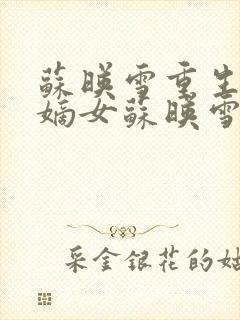 蘇暎雪重生
嫡女蘇暎雪
采金銀花的姑